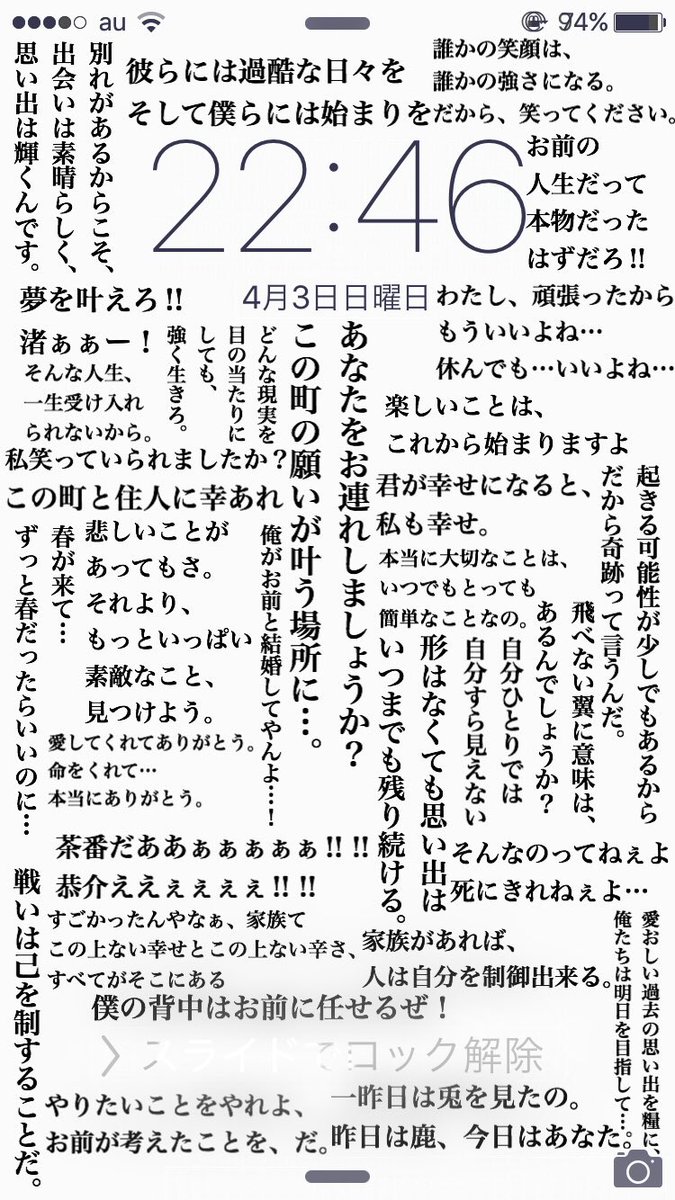 au
94%
別れがあるからこそ、
出会いは素晴らしく、
思い出は輝くんです。
彼らには過酷な日々を
そして僕らには始まりを
誰かの笑顔は、
誰かの強さになる。
だから、笑ってください。
22:46
お前の
人生だって
本物だった
はずだろ!!
夢を叶えろ!!
4月3日日曜日
わたし、頑張ったから
もういいよね…
休んでも…いいよね…
渚ぁぁー！
そんな人生、
一生受け入れ
られないから。
どんな現実を
目の当たりに
しても、
強く生きろ。
あなたをお連れしましょうか？
この町の願いが叶う場所に…。
楽しいことは、
これから始まりますよ
私笑っていられましたか？
この町と住人に幸あれ
君が幸せになると、
私も幸せ。
起きる可能性が少しでもあるから
だから奇跡って言うんだ。
春が来て…
ずっと春だったらいいのに…
悲しいことが
あってもさ。
それより、
もっといっぱい
素敵なこと、
見つけよう。
俺がお前と結婚してやんよ…！
本当に大切なことは、
いつでもとっても
簡単なことなの。
飛べない翼に意味は、
あるんでしょうか？
自分ひとりでは
自分すら見えない
形はなくても思い出は
いつまでも残り続ける。
愛してくれてありがとう。
命をくれて…
本当にありがとう。
茶番だああぁぁぁぁぁ!! !!
恭介ええぇぇぇぇ!! !!
そんなのってねぇよ
死にきれねぇよ…
戦いは己を制することだ。
すごかったんやなぁ、家族て
この上ない幸せとこの上ない辛さ、
すべてがそこにある
家族があれば、
人は自分を制御出来る。
愛おしい過去の思い出を糧に、
俺たちは明日を目指して…。
僕の背中はお前に任せるぜ！
スライドでロック解除
やりたいことをやれよ、
お前が考えたことを、だ。
一昨日は兎を見たの。
昨日は鹿、今日はあなた。